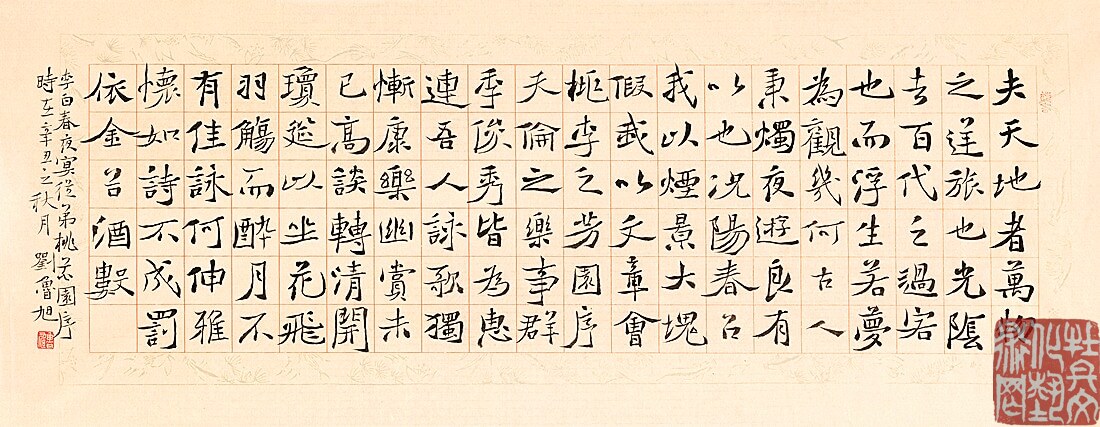 夫天地者萬物
之逆旅也光陰
者百代之過客
也而浮生若夢
為觀幾何古人
秉燭夜遊良有
以也况陽春召
我以煙景大塊
假我以文章會
桃李之芳園序
天倫之樂事群
季俊秀皆為惠
連吾人詠歌獨
慚康樂幽賞未
已高談轉清開
瓊筵以坐花飛
羽觴而醉月不
有佳詠何伸雅
懷如詩不成罰
依金谷酒數
李白春夜宴從弟桃花園序
時在辛丑之秋月 劉魯旭